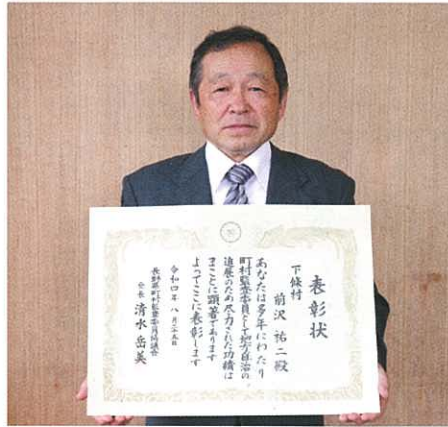 表彰状
下條村
前沢 祐二 殿
あなたは多年にわたり
町村監査委員として地方自治の
進展のため尽力された功績は
まことに顕著であります
よってここに表彰します
令和四年 八月二十五日
長野県町村監査委員協議会
会長 清水 岳美